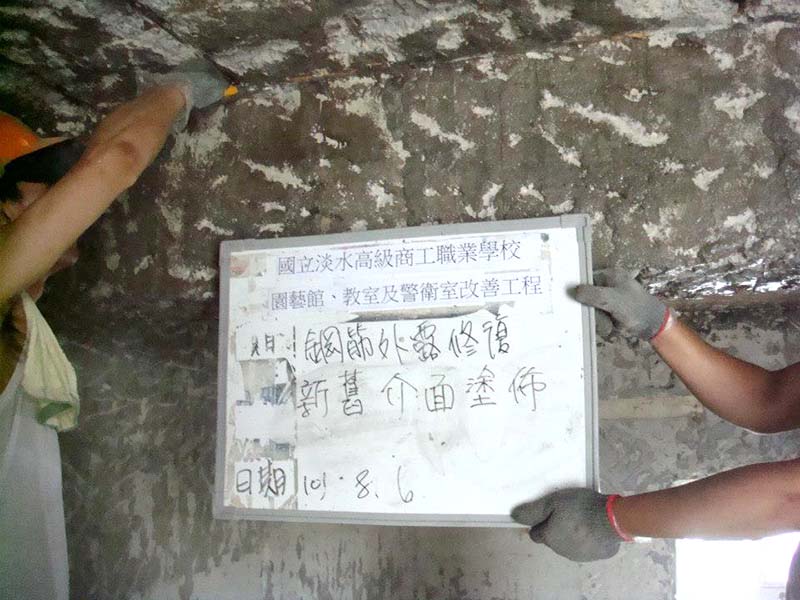 國立淡水高級商工職業學校
園藝館、教室及警衛室改善工程
鋼筋外露修復
新舊介面塗佈
日期 101.8.6